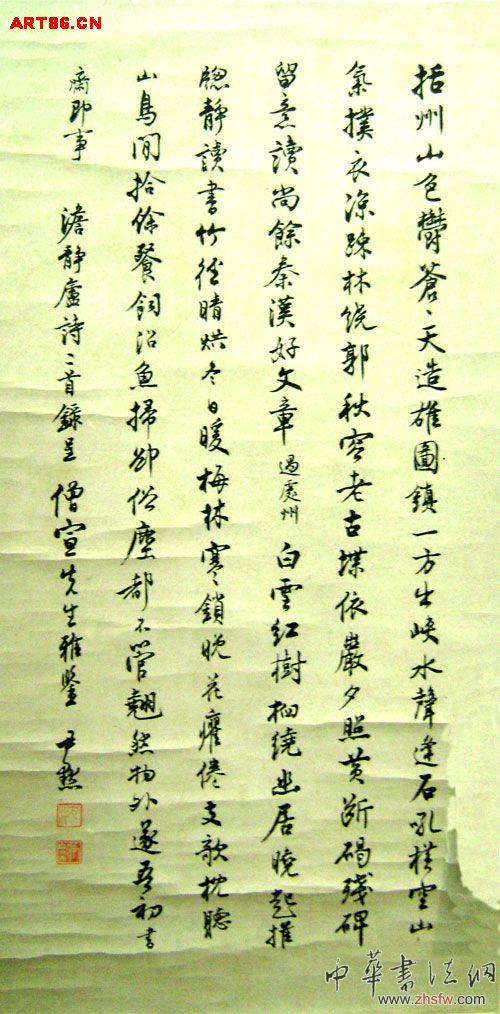 ART86.CN
括州山色鬱蒼々天造雄圖鎮一方出峽水聲逢石吼橫空山
氣撲衣涼疎林繞郭秋容老古堞依巖夕照黃斷碣殘碑
留意讀尚餘秦漢好文章 過處州 白雲紅樹楓繞幽居曉起推
窗靜讀書竹徑晴烘冬日暖梅林寒鎖晚花癯倦支欹枕聽
山鳥閒拾餘餐飼沼魚掃卻俗塵都不管翹然物外遂吾初 書
齋即事 澹靜廬詩二首錄呈 僧宣先生雅鑒 尹默
中華書法網
www.zhsfw.com